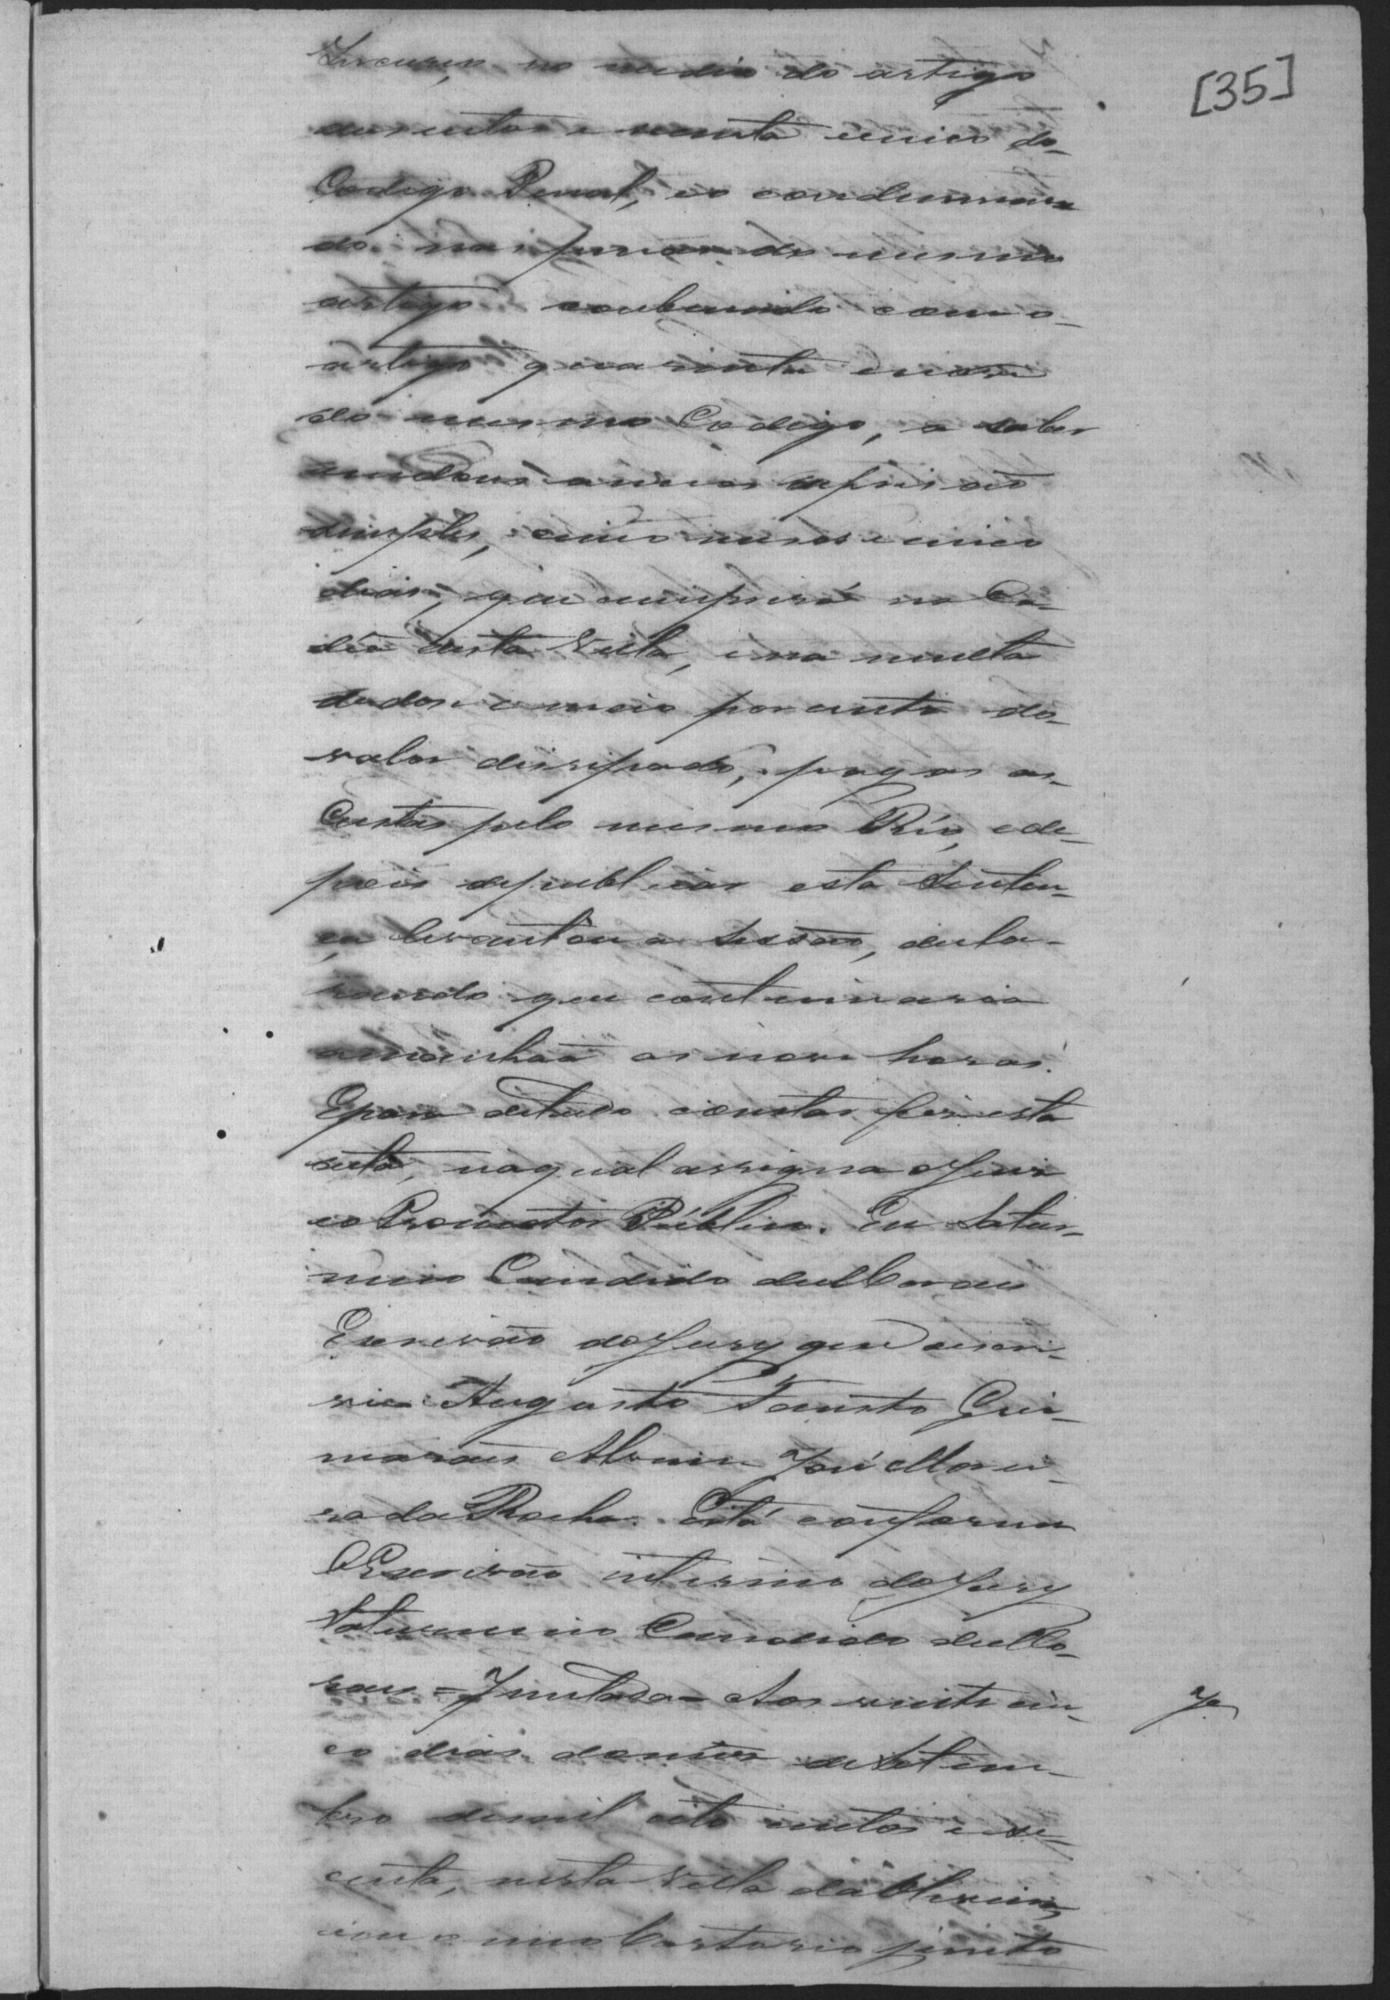 [35]
no medio do artigo
dusentos e secenta e cinco do
Codigo Penal, e o condemnan
do nas penas do mesmo
artigo combinado com o
artigo quarenta e nove
do mesmo Codigo, a saber
em dous annos de prisão
simples, cinco meses e cinco
dias, que cumprirá na Ca-
dêa desta Villa, e na multa
de dose e meio por cento do
valor dissipado, pagas as
Custas pelo mesmo Réo, e de-
pois de publicar esta Senten-
ça levantou a Sessão, decla-
rando que continuaria
amanhaã as nove horas.
E para de tudo constar fiz esta
acta, na qual assigna o Juiz
e o Promotor Publico. Eu Satur-
nino Candido de Moraes
Escrivão do Jury que escre-
vi Augusto Fausto Gui-
marães Alvim José Morei-
ra da Rocha. Está conforme
O Escrivão interino do Jury
Saturnino Candido de Mo-
raes = Juntada = Aos vinte cin-
co dias do mes de Setem-
bro de mil oito centos e se-
centa, nesta Villa da
em o meo Cartorio junto